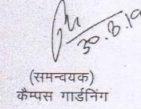 30.8.19
(समन्वयक)
कैम्पस गार्डनिंग